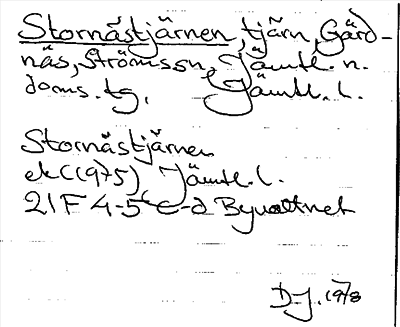 Stornästjärnen, tjärn, Gärd-
näs, Strömssn, Jämtl. n.
doms. tg, Jämtl. l.
Stornästjärnen
ek C (1975) Jämtl. l.
21F 4-5 c-d Byvattnet
D-J. 1978